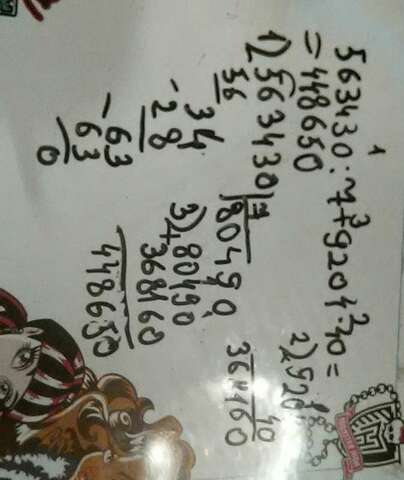 563430:7+9204·40=
=448650
1) 563430|7
56
80490
34
-28
-63
63
0
2) 9204
40
368160
3) 80490
+368160
448650